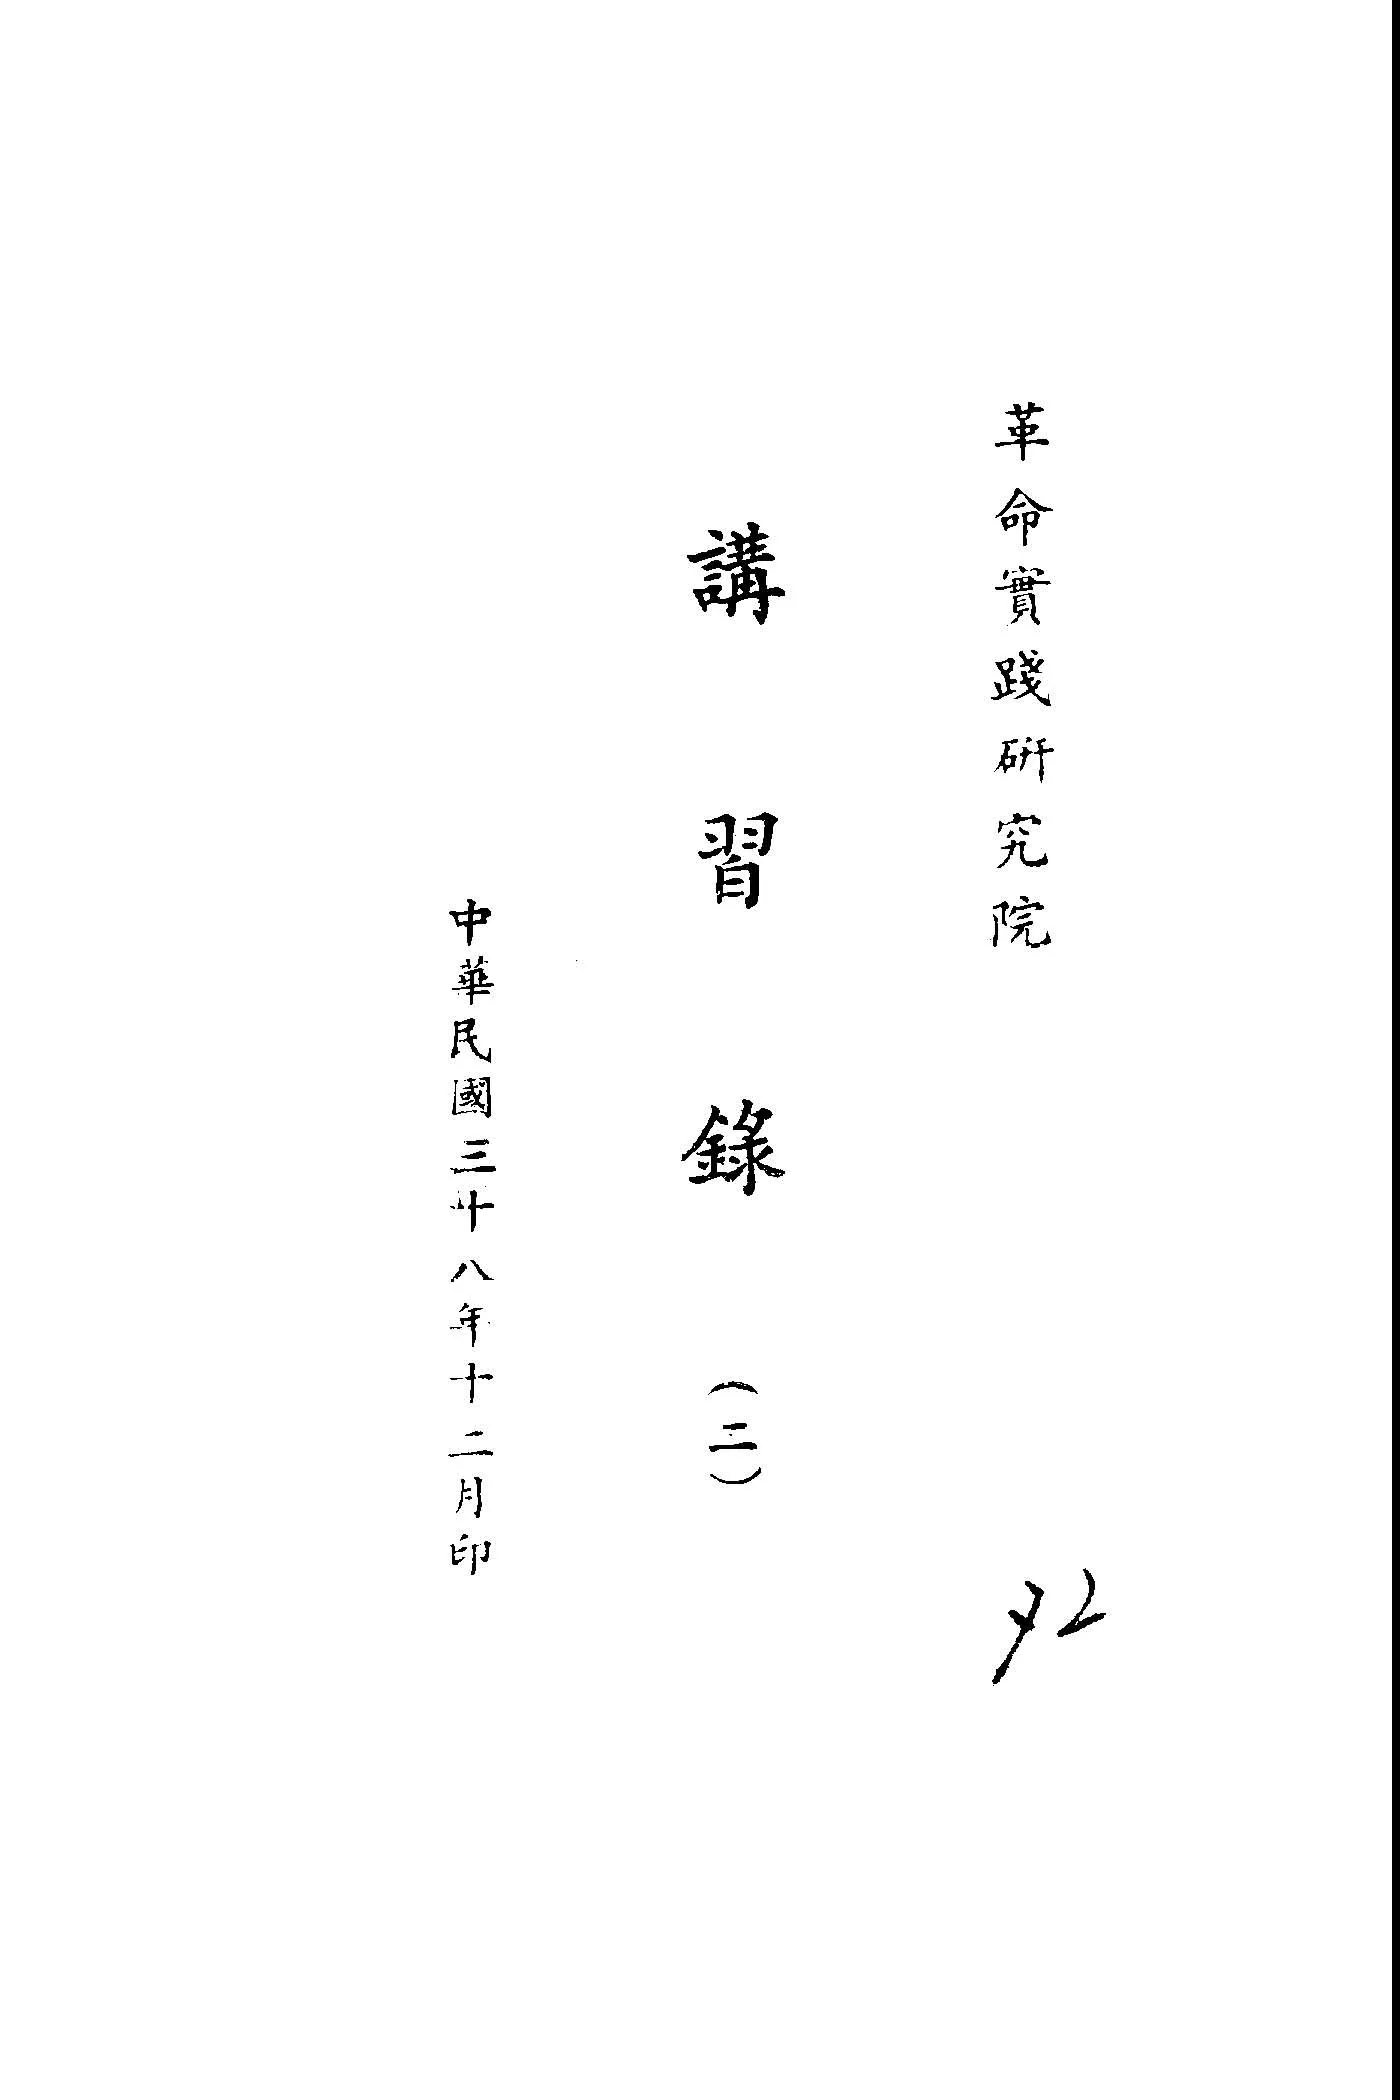 革命實踐研究院
講習錄（二）
中華民國三十八年十二月印